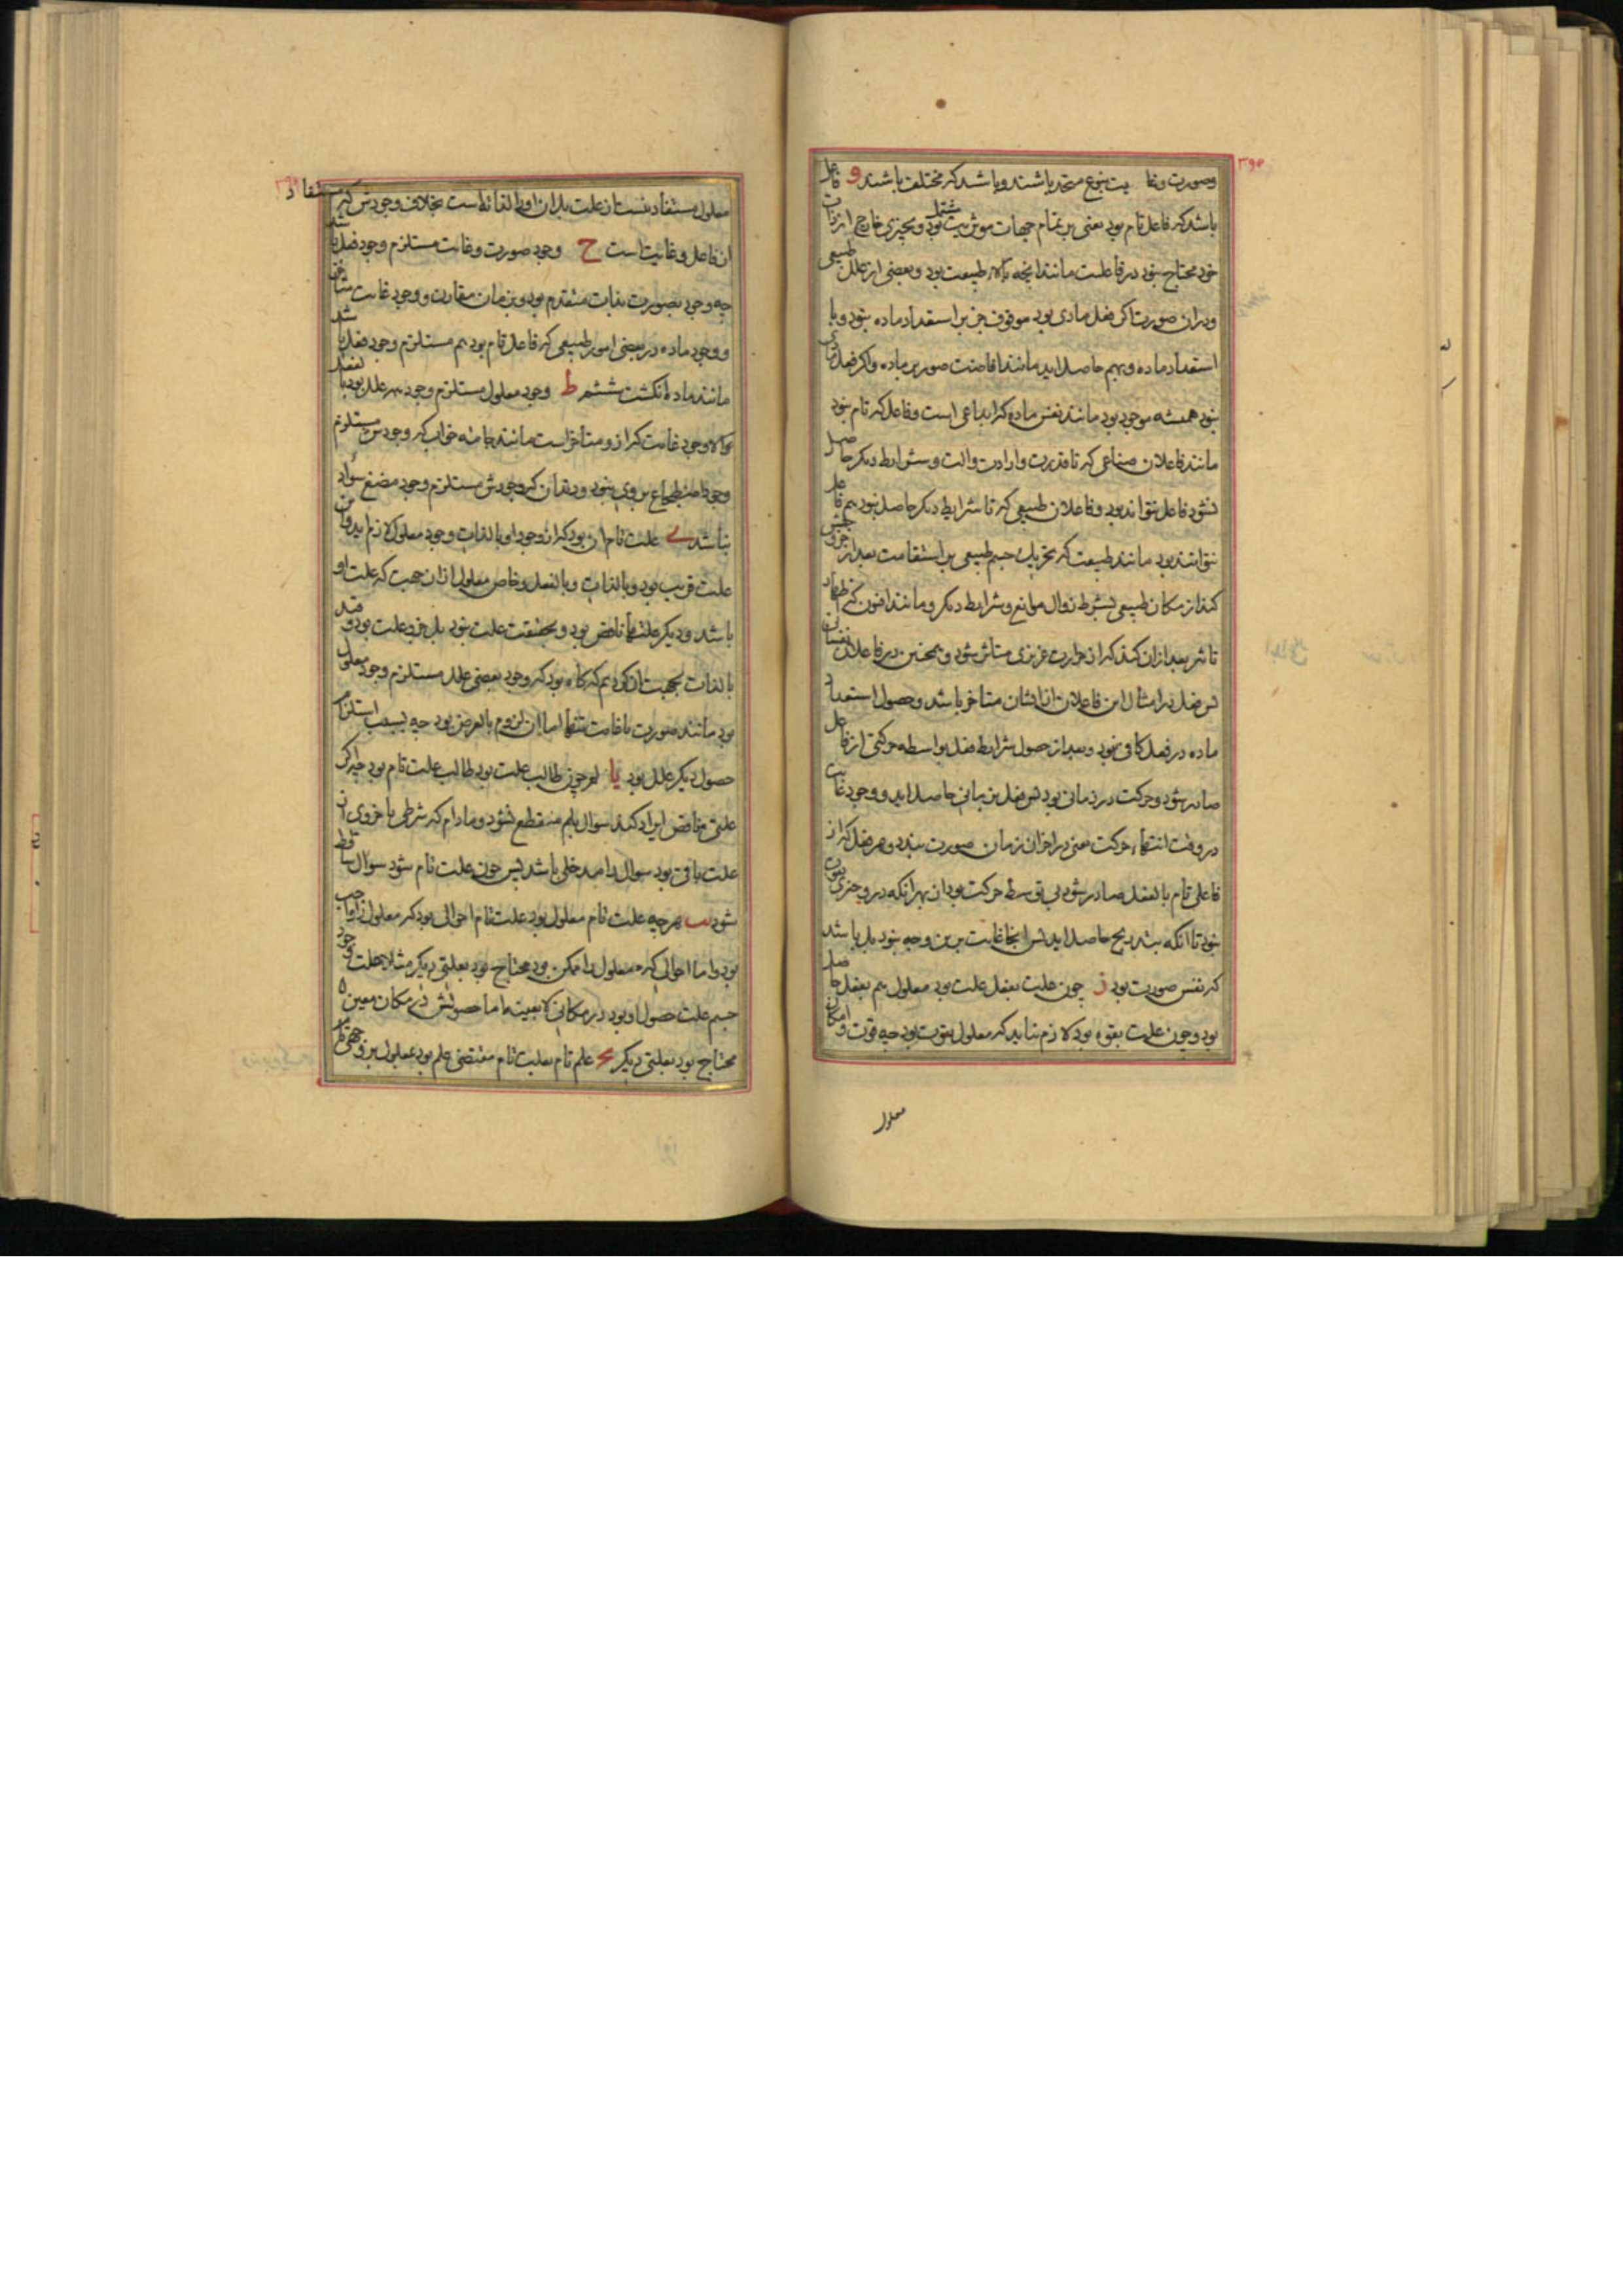 ۳۹۵
وصورت وغا یت بنوع متحد باشند وباشد که مختلف باشند و فاعل
باشد که فاعل تام بود یعنی بر تمام جهات موثریت مشتمل بود وبچیزی خارج از ذات
خود محتاج نبود در فاعلیت مانند انچه بالاء طبیعت بود وبعضی از علل طبیعی
ودران صورت اکر فعل مادی بود موقوف جز بر استعداد ماده نبود وبا
استعداد ماده وبهم حاصل اید مانند افاضت صور بر ماده واکر فعل مادی
نبود همیشه موجود بود مانند نفس ماده که ابداعی است وفاعل که تام نبود
مانند فاعلان صناعی که تا قدرت وارادت والت وشرایط دیکر حاصل
نشود فاعل نتواند بود وفاعلان طبیعی که تا شرایط دیکر حاصل نبود هم فاعل
نتوانند بود مانند طبیعت که تحریک جسم طبیعی بر استقامت بعد از خروجش
کند از مکان طبیعی بشرط زوال موانع وشرایط دیکر ومانند افیون که اظهار
تاثیر بعد ازان کند که از حرارت غریزی متاثر شود وهمچنین در فاعلان نفسانی
پس فعل در امثال این فاعلان از ایشان متاخر باشد وحصول استعداد
ماده در فعل کافی نبود وبعد از حصول شرایط فعل بواسطه حرکتی از فاعل
صادر شود وحرکت در زمانی بود پس فعل بزمانی حاصل اید ووجود غایت
در وقت انتهاء حرکت یعنی در اخر ان زمان صورت بندد وهر فعل که از
فاعلی تام بالفعل صادر شود بی توسط حرکت بود ان بهر انکه در وی چیزی بقوت
نبود تا انکه بتدریج حاصل اید پس انجا غایت برین وجه نبود بل باشد
که نفس صورت بود ز چون علیت بفعل علت بود معلول هم بفعل حاصل
بود وچون علت بقوه بود لازم نیاید که معلول بقوت بود چه قوت وامکان
معلول
معلول مستفاد نیست از علت بل ان او را لذاته است بخلاف وجودش که مستفاد
از فاعل وغایت است ح وجود صورت وغایت مستلزم وجود فعل باشد
چه وجود بصورت بذات متقدم بود وبزمان مقارن ووجود غایت متاخر
ووجود ماده در بعضی امور طبیعی که فاعل تام بود هم مستلزم وجود فعل باشد
مانند ماده انکشت ششم ط وجود معلول مستلزم وجود هر علل بود بالفعل
الا وجود غایت که ازو متاخر است مانند جامه خواب که وجودش مستلزم
وجود اضطجاع بر وی نبود ودندان که وجودش مستلزم وجود مضغ سواد
نباشد ی علت تام ان بود که از وجود او بالذات وجود معلول لازم اید وان
علت قریب بود وبالذات وبالفعل وخاص معلول ازان جهت که علت او
باشد ودیکر علتها ناقص بود وبحقیقت علت نبود بل جزو علت بود وقید
بالذات بجهت ان کردیم که کاه بود که وجود بعضی علل مستلزم وجود معلول
بود مانند صورت یا غایت تنها اما ان لزوم بالعرض بود چه بسبب استلزام
حصول دیکر علل بود یا لم چون طالب علت بود طالب علت تام بود چه اکر
علتی ناقص ایراد کند سوال بلم منقطع نشود ومادام که شرطی یا جزوی از
علت باقی بود سوال را مدخلی باشد پس چون علت تام شود سوال ساقط
شود یب هرچه علت تام معلول بود علت تمام احوالی بود که معلول را واجب
بود واما احوالی که معلول را ممکن بود محتاج بود بعلتی دیکر مثلا علت وجود
جسم علت حصول او بود در مکانی لا بعینه اما حصولش در مکان معین
محتاج بود بعلتی دیکر یج علم تام بعلت تام مقتضی علم بود بمعلول بر وجهی تام